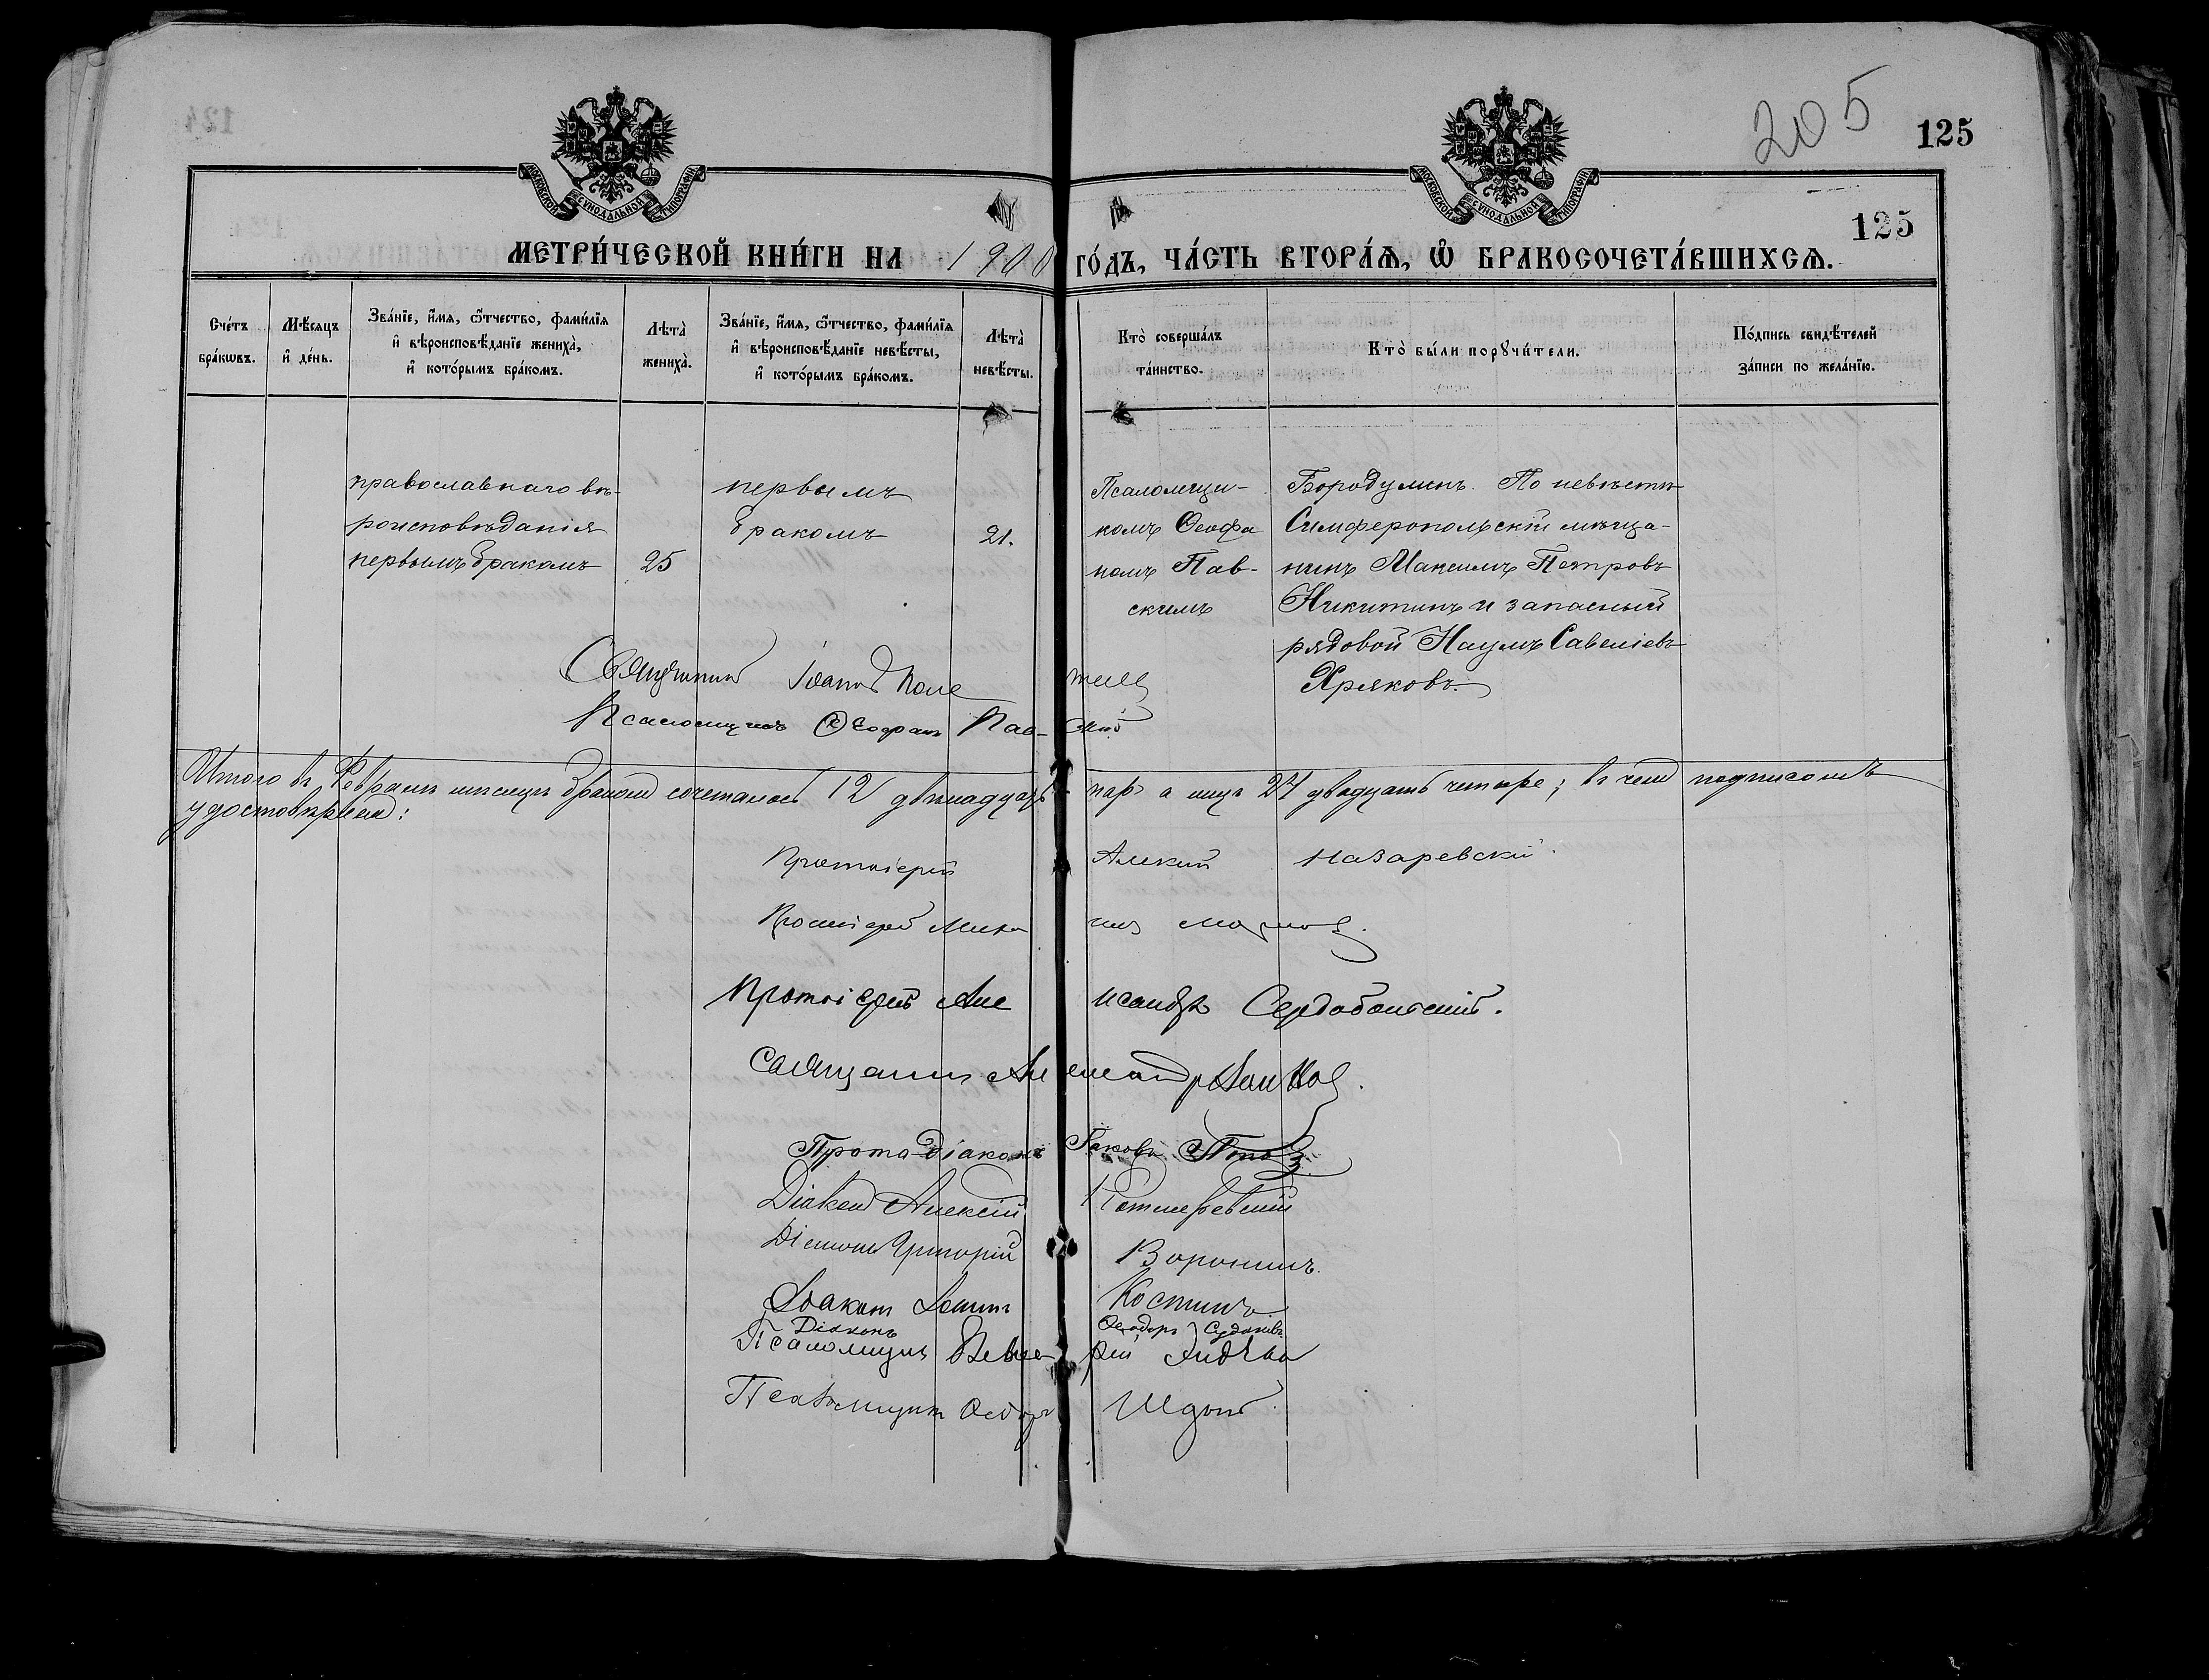 205
125
125
МОСКОВСКОЙ СѴНОДАЛЬНОЙ ТИПОГРАФІИ
МОСКОВСКОЙ СѴНОДАЛЬНОЙ ТИПОГРАФІИ
МЕТРИ́ЧЕСКОЙ КНИ́ГИ НА 1900 ГО́ДЪ, ЧА́СТЬ ВТОРА́Ѧ, Ѽ БРАКОСОЧЕТА́ВШИХСѦ.
Сче́тъ
бра́кѡвъ.
Мѣ́сяцъ
и҆ де́нь.
Зва́нїе, и҆́мѧ, ѻ҆́тчество, фами́лїѧ
и҆ вѣроисповѣ́данїе жениха̀,
и҆ кото́рымъ бра́комъ.
Лѣта̀
жениха̀.
Зва́нїе, и҆́мѧ, ѻ҆́тчество, фами́лїѧ
и҆ вѣроисповѣ́данїе невѣ́сты,
и҆ кото́рымъ бра́комъ.
Лѣта̀
невѣ́сты.
Кто̀ соверша́лъ
та́инство.
Кто̀ бы́ли порꙋчи́тели.
По́дпись свидѣ́телей
за́писи по жела́нїю.
православнаго вѣ-
роисповѣданія
первымъ бракомъ
25
первымъ
бракомъ
21.
Псаломщи-
комъ Ѳеофа
номъ Пав-
скимъ
Бородулинъ. По невѣстѣ
Симферопольскій мѣща-
нинъ Максимъ Петровъ
Никитинъ и запасный
рядовой Наумъ Савеліевъ
Хряковъ.
Священникъ Іоаннъ
Псаломщикъ Ѳеофанъ Пав-скій
Итого въ Февралѣ мѣсяцѣ бракомъ сочеталось 12 двѣнадцать паръ а лицъ 24 двадцать четыре; въ чемъ подписомъ
удостовѣряемъ:
Протоіерей Алексій Назаревскій
Протоіерей
Протоіерей Александръ Сердобольскій.
Священникъ Александръ
Протодіаконъ Іаковъ
Діаконъ Алексій
Діаконъ Григорій Воронинъ.
Діаконъ Костинъ
Діаконъ Ѳеодоръ Судаковъ
Псаломщикъ
Псаломщикъ Ѳеодоръ